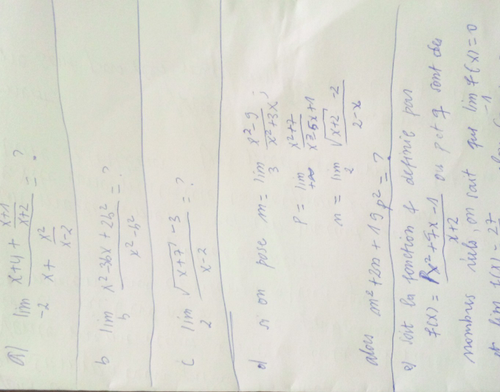 a) lim -2 (x+4 + (x+1)/(x+2)) / (x + x²/(x-2)) = ?
b lim b (x²-3bx+2b²)/(x²-b²) = ?
c lim 2 (√(x+7) -3)/(x-2) = ?
d) si on pose m = lim 3 (x²-9)/(x²+3x) ;
p = lim +∞ (x²+7)/(x²-5x+1)
n = lim 2 (√(x+2) -2)/(2-x)
alors m²+2n+19p² = ?
e) soit la fonction f définie par
f(x) = (Px²-7x-1)/(x+2) où p et q sont des
nombres réels, on sait que lim -1 f(x) = 0